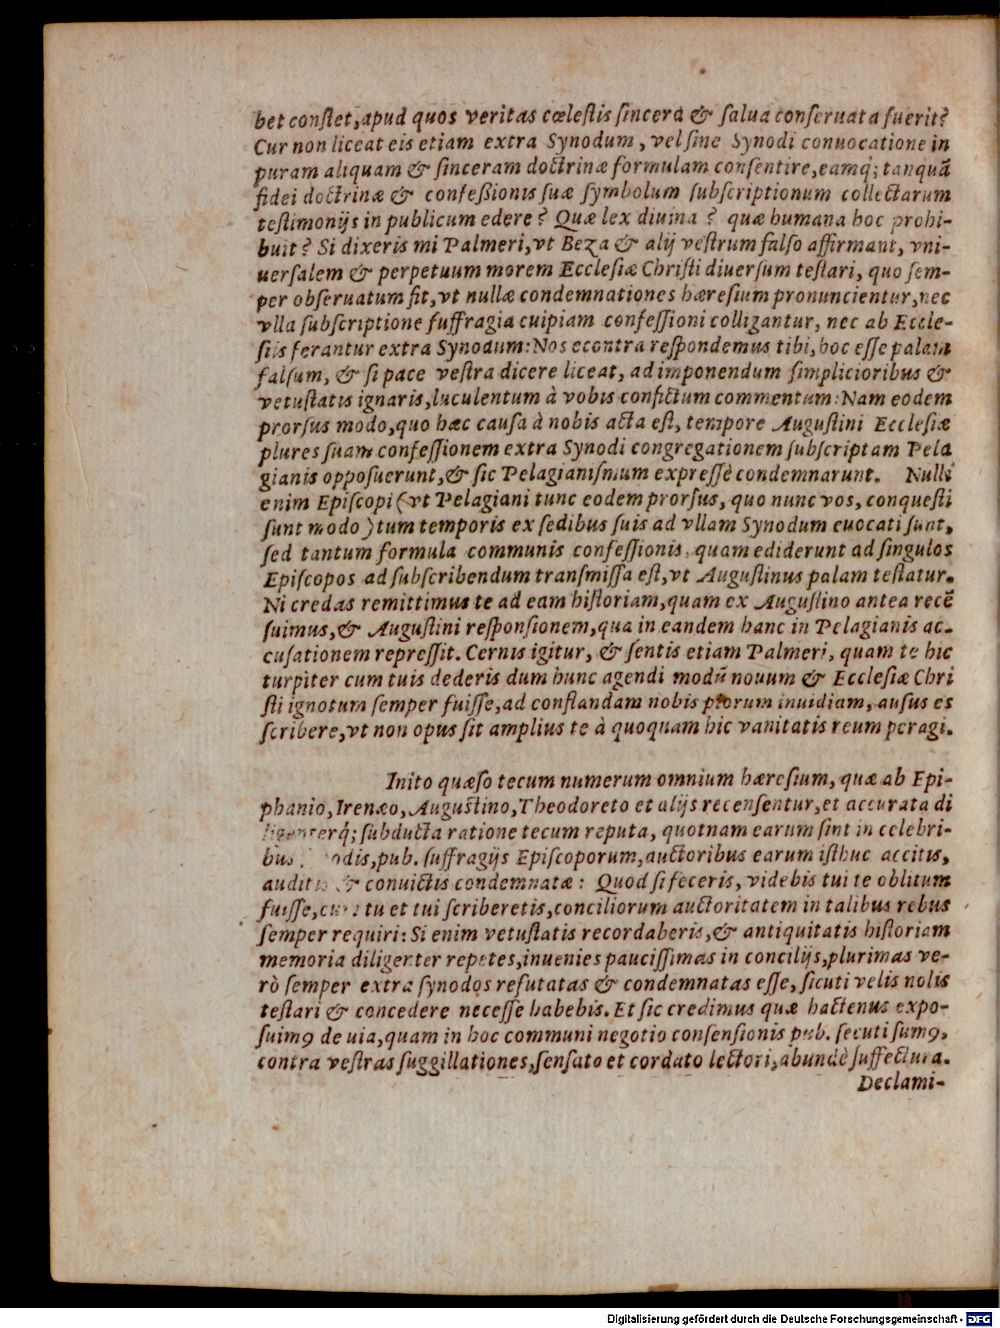 bet conſtet, apud quos veritas cœleſtis ſincera & ſalua conſeruata fuerit?
Cur non liceat eis etiam extra Synodum, vel ſine Synodi conuocatione in
puram aliquam & ſinceram doctrinæ formulam conſentire, eamq́; tanquā
fidei doctrinæ & confeßionis ſuæ ſymbolum ſubſcriptionum collectarum
teſtimonijs in publicum edere? Quæ lex diuina? quæ humana hoc prohi-
buit? Si dixeris mi Palmeri, vt Beza & alij veſtrum falſo affirmant, vni-
uerſalem & perpetuum morem Eccleſiæ Chriſti diuerſum teſtari, quo ſem-
per obſeruatum ſit, vt nullæ condemnationes hæreſium pronuncientur, nec
vlla ſubſcriptione ſuffragia cuipiam confeſſioni colligantur, nec ab Eccle-
ſiis ferantur extra Synodum: Nos econtra reſpondemus tibi, hoc eſſe palam
falſum, & ſi pace veſtra dicere liceat, ad imponendum ſimplicioribus &
vetuſtatis ignaris, luculentum à vobis confictum commentum: Nam eodem
prorſus modo, quo hæc cauſa à nobis acta eſt, tempore Auguſtini Eccleſiæ
plures ſuam confeſſionem extra Synodi congregationem ſubſcriptam Pela
gianis oppoſuerunt, & ſic Pelagianiſmum expreſſè condemnarunt. Nulli
enim Epiſcopi (vt Pelagiani tunc eodem prorſus, quo nunc vos, conqueſti
ſunt modo) tum temporis ex ſedibus ſuis ad vllam Synodum euocati ſunt,
ſed tantum formula communis confeſſionis, quam ediderunt ad ſingulos
Epiſcopos ad ſubſcribendum tranſmiſſa eſt, vt Auguſtinus palam teſtatur.
Ni credas remittimus te ad eam hiſtoriam, quam ex Auguſtino antea recē
ſuimus, & Auguſtini reſponſionem, qua in eandem hanc in Pelagianis ac-
cuſationem repreſſit. Cernis igitur, & ſentis etiam Palmeri, quam te hic
turpiter cum tuis dederis dum hunc agendi modū nouum & Eccleſiæ Chri
ſti ignotum ſemper fuiſſe, ad conflandam nobis piorum inuidiam, auſus es
ſcribere, vt non opus ſit amplius te à quoquam hic vanitatis reum peragi.
Inito quæſo tecum numerum omnium hæreſium, quæ ab Epi-
phanio, Irenæo, Auguſtino, Theodoreto et alijs recenſentur, et accurata di
ligenterq́; ſubducta ratione tecum reputa, quotnam earum ſint in celebri-
bus pub. ſuffragijs Epiſcoporum, auctoribus earum iſthuc accitis,
auditis & conuictis condemnatæ: Quod ſi feceris, videbis tui te oblitum
fuiſſe, cum tu et tui ſcriberetis, conciliorum auctoritatem in talibus rebus
ſemper requiri: Si enim vetuſtatis recordaberis, & antiquitatis hiſtoriam
memoria diligenter repetes, inuenies pauciſſimas in concilijs, plurimas ve-
rò ſemper extra ſynodos refutatas & condemnatas eſſe, ſicuti velis nolis
teſtari & concedere neceſſe habebis. Et ſic credimus quæ hactenus expo-
ſuimꝰ de via, quam in hoc communi negotio conſenſionis pub. ſecuti ſumꝰ,
contra veſtras ſuggillationes, ſenſato et cordato lectori, abundè ſuffectura.
Declami-
Digitalisierung gefördert durch die Deutsche Forschungsgemeinschaft - DFG